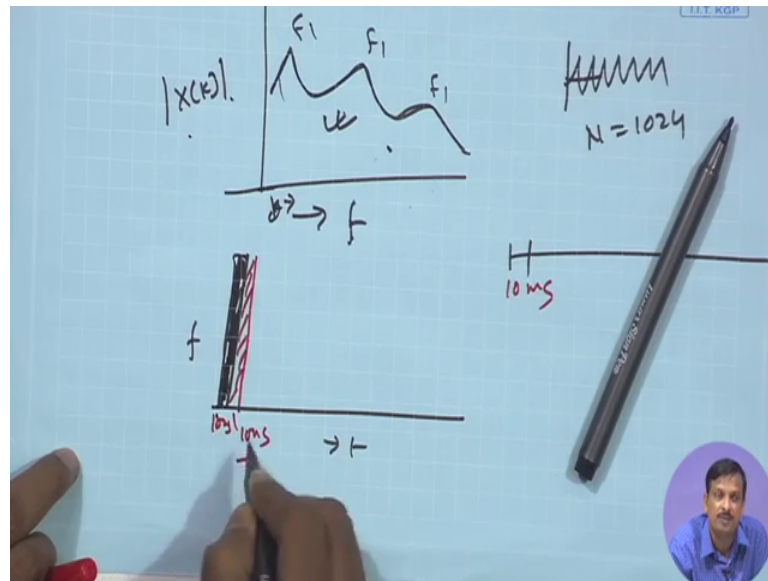 I.I.T. KGP
F1
F1
F1
|X(k)|.
N=1024
k→→ f
10 ms
f
10ms
10ms
→ t